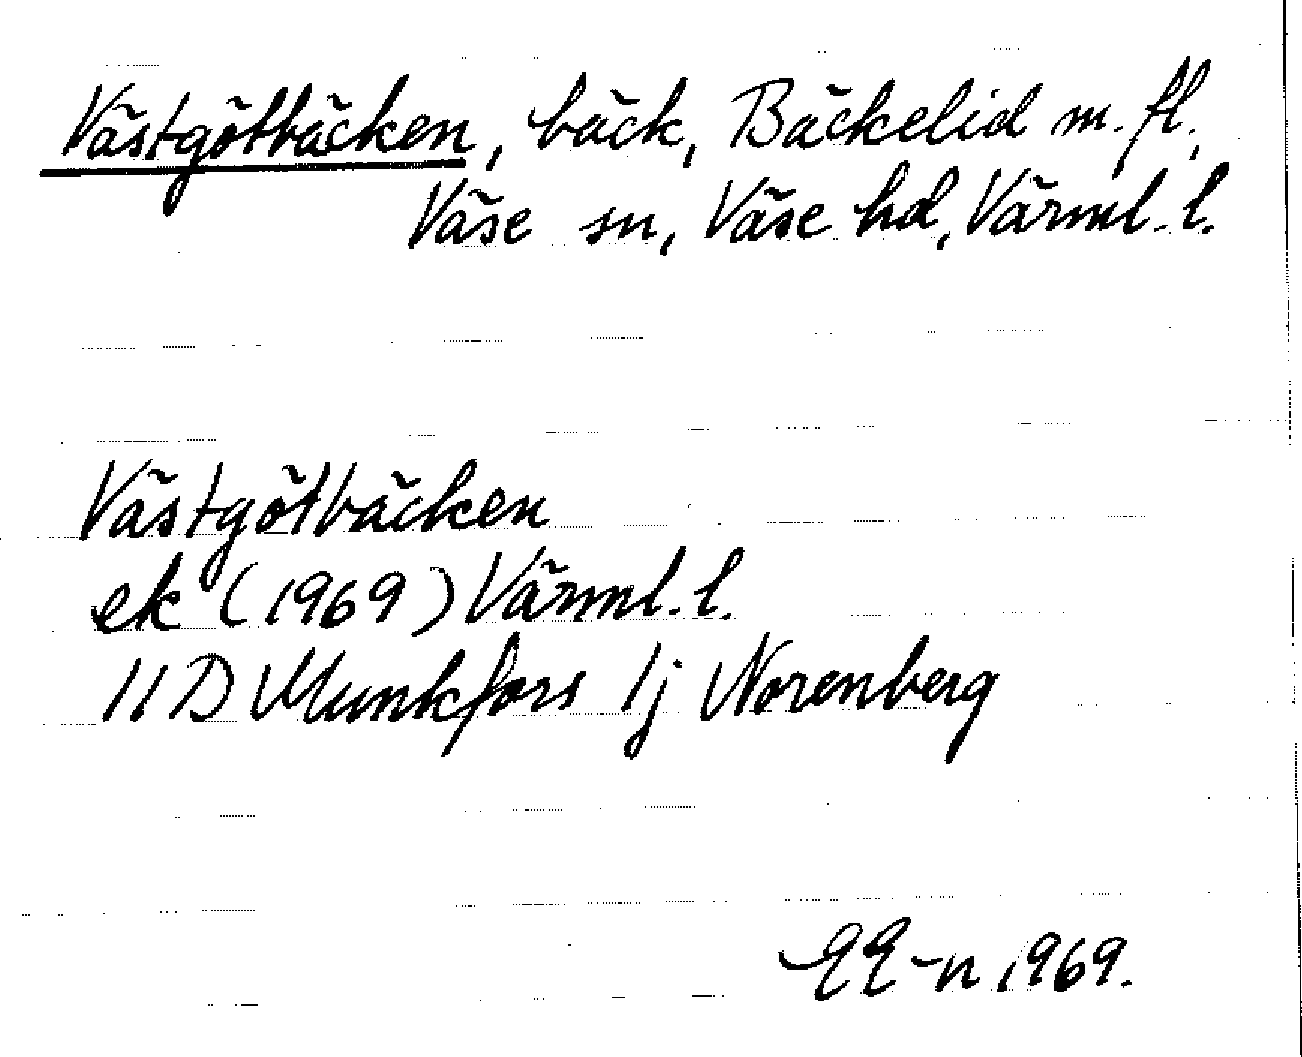 Västgötbäcken, bäck, Bäckelid m. fl.,
Väse sn, Väse hd, Värml. l.
Västgötbäcken
ek (1969) Värml. l.
11 D Munkfors 1j Norenberg
1969.